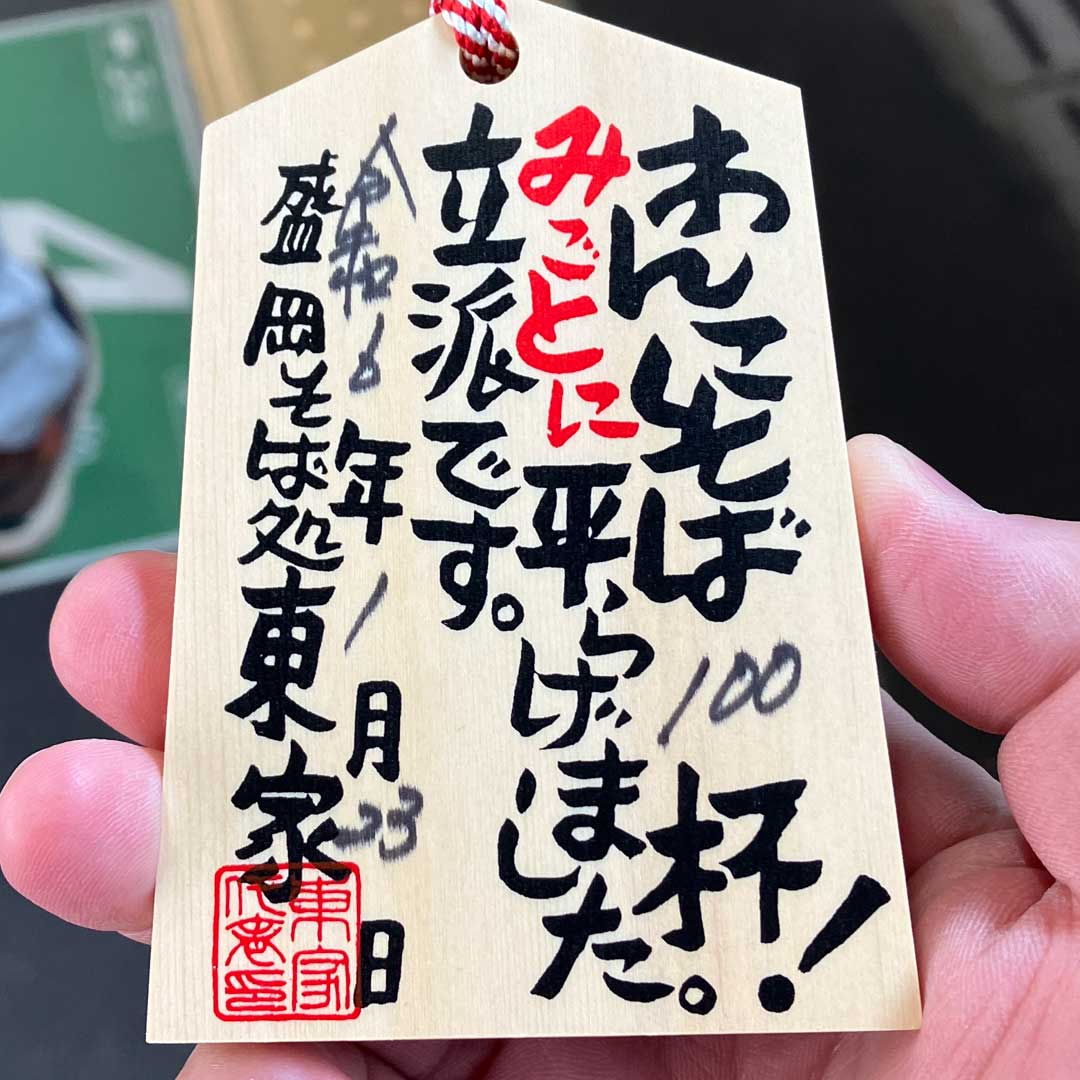 わんこそば100杯！
みごとに平らげました。
立派です。
令和6年1月23日
盛岡そば処東家
東家
代表印